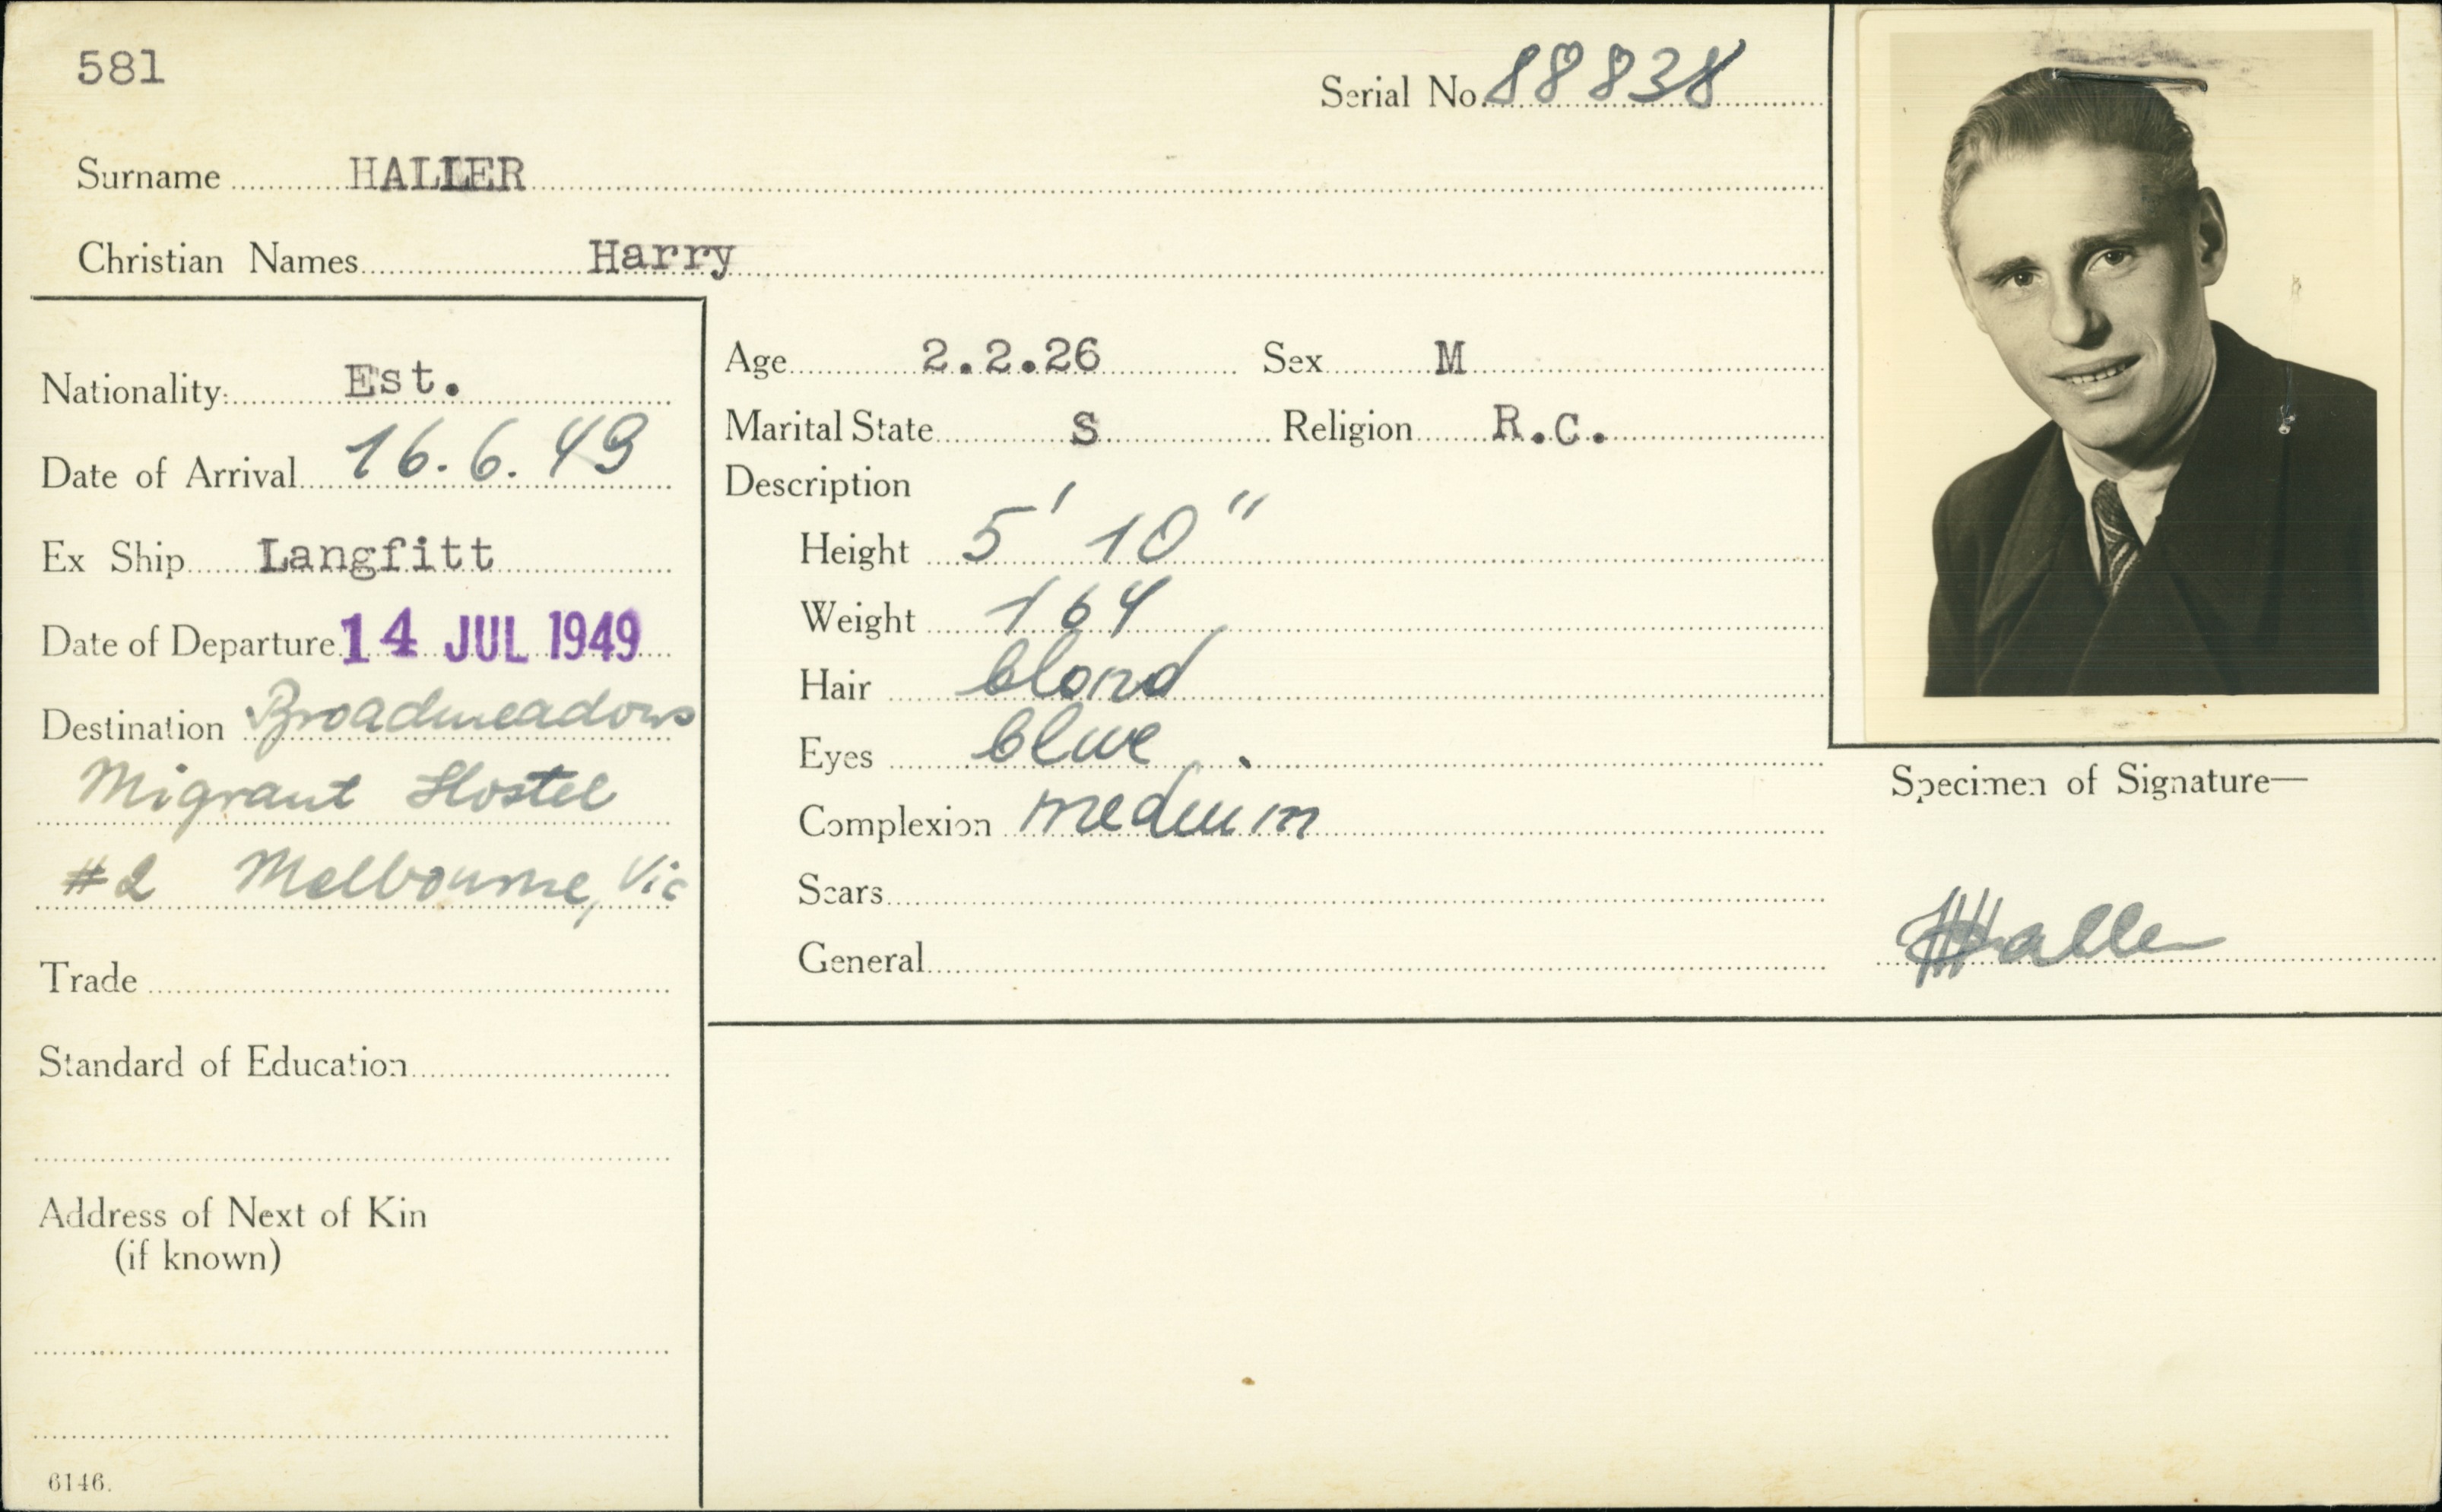 581
Serial No. 88838
Surname HALLER
Christian Names Harry
Nationality: Est.
Date of Arrival 16.6.49
Ex Ship Langfitt
Date of Departure 14 JUL 1949
Destination Broadmeadows
Migrant Hostel
#2 Melbourne, Vic
Trade
Standard of Education
Address of Next of Kin
(if known)
6146.
Age 2.2.26 Sex M
Marital State S Religion R.C.
Description
Height 5' 10"
Weight 164
Hair blond
Eyes blue
Complexion medium
Scars
General
Specimen of Signature—
HHaller